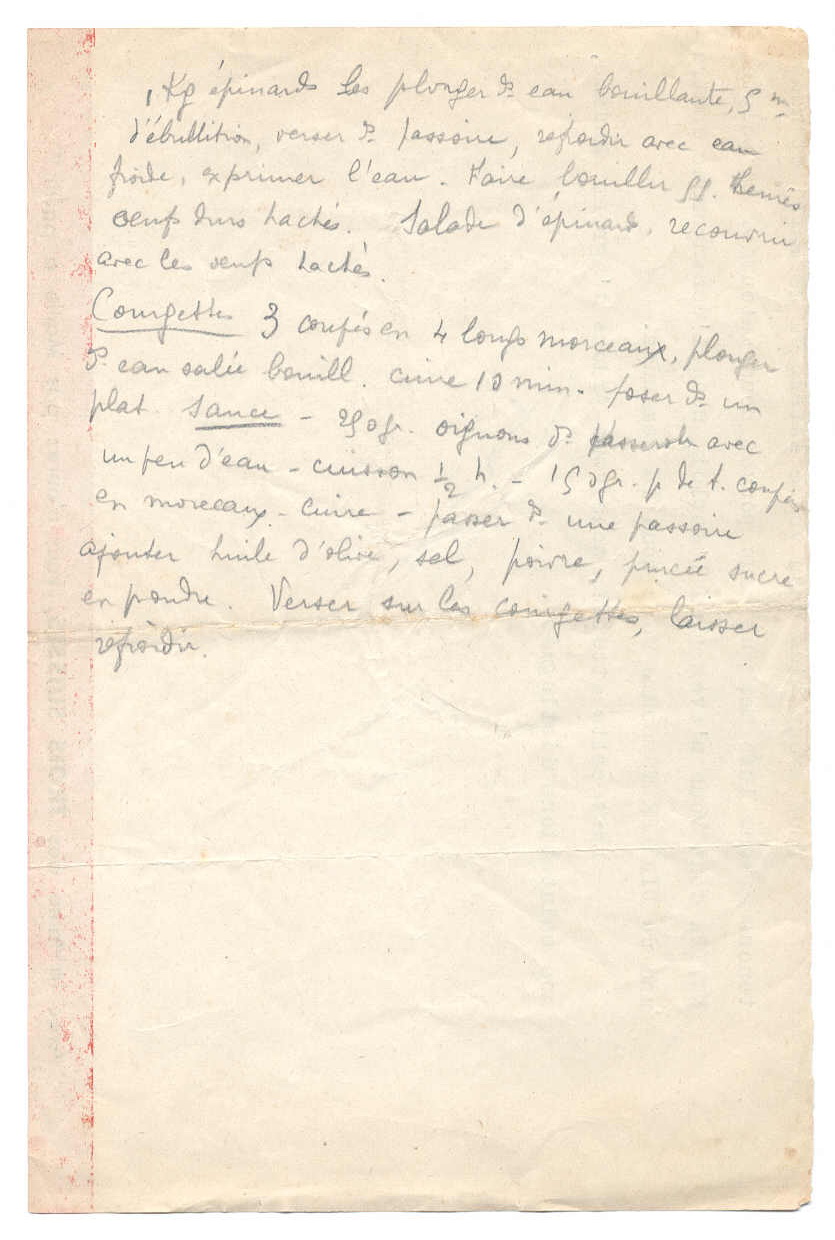 1 Kg épinards les plonger ds eau bouillante, 5 m
d'ébullition, verser ds passoire, refroidir avec eau
froide, exprimer l'eau. Faire bouillir
oeufs durs hachés. Salade d'épinards, recouvrir
avec les oeufs hachés.
Courgettes 3 coupés en 4 longs morceaux, plonger
ds eau salée bouill. cuire 10 min. poser ds un
plat. Sauce - 250 gr. oignons ds casserole avec
un peu d'eau - cuisson ½ h. - 150 gr. p de t. coupées
en morceaux - cuire - passer ds une passoire
ajouter huile d'olive, sel, poivre, pincée sucre
en poudre. Verser sur les courgettes, laisser
refroidir.